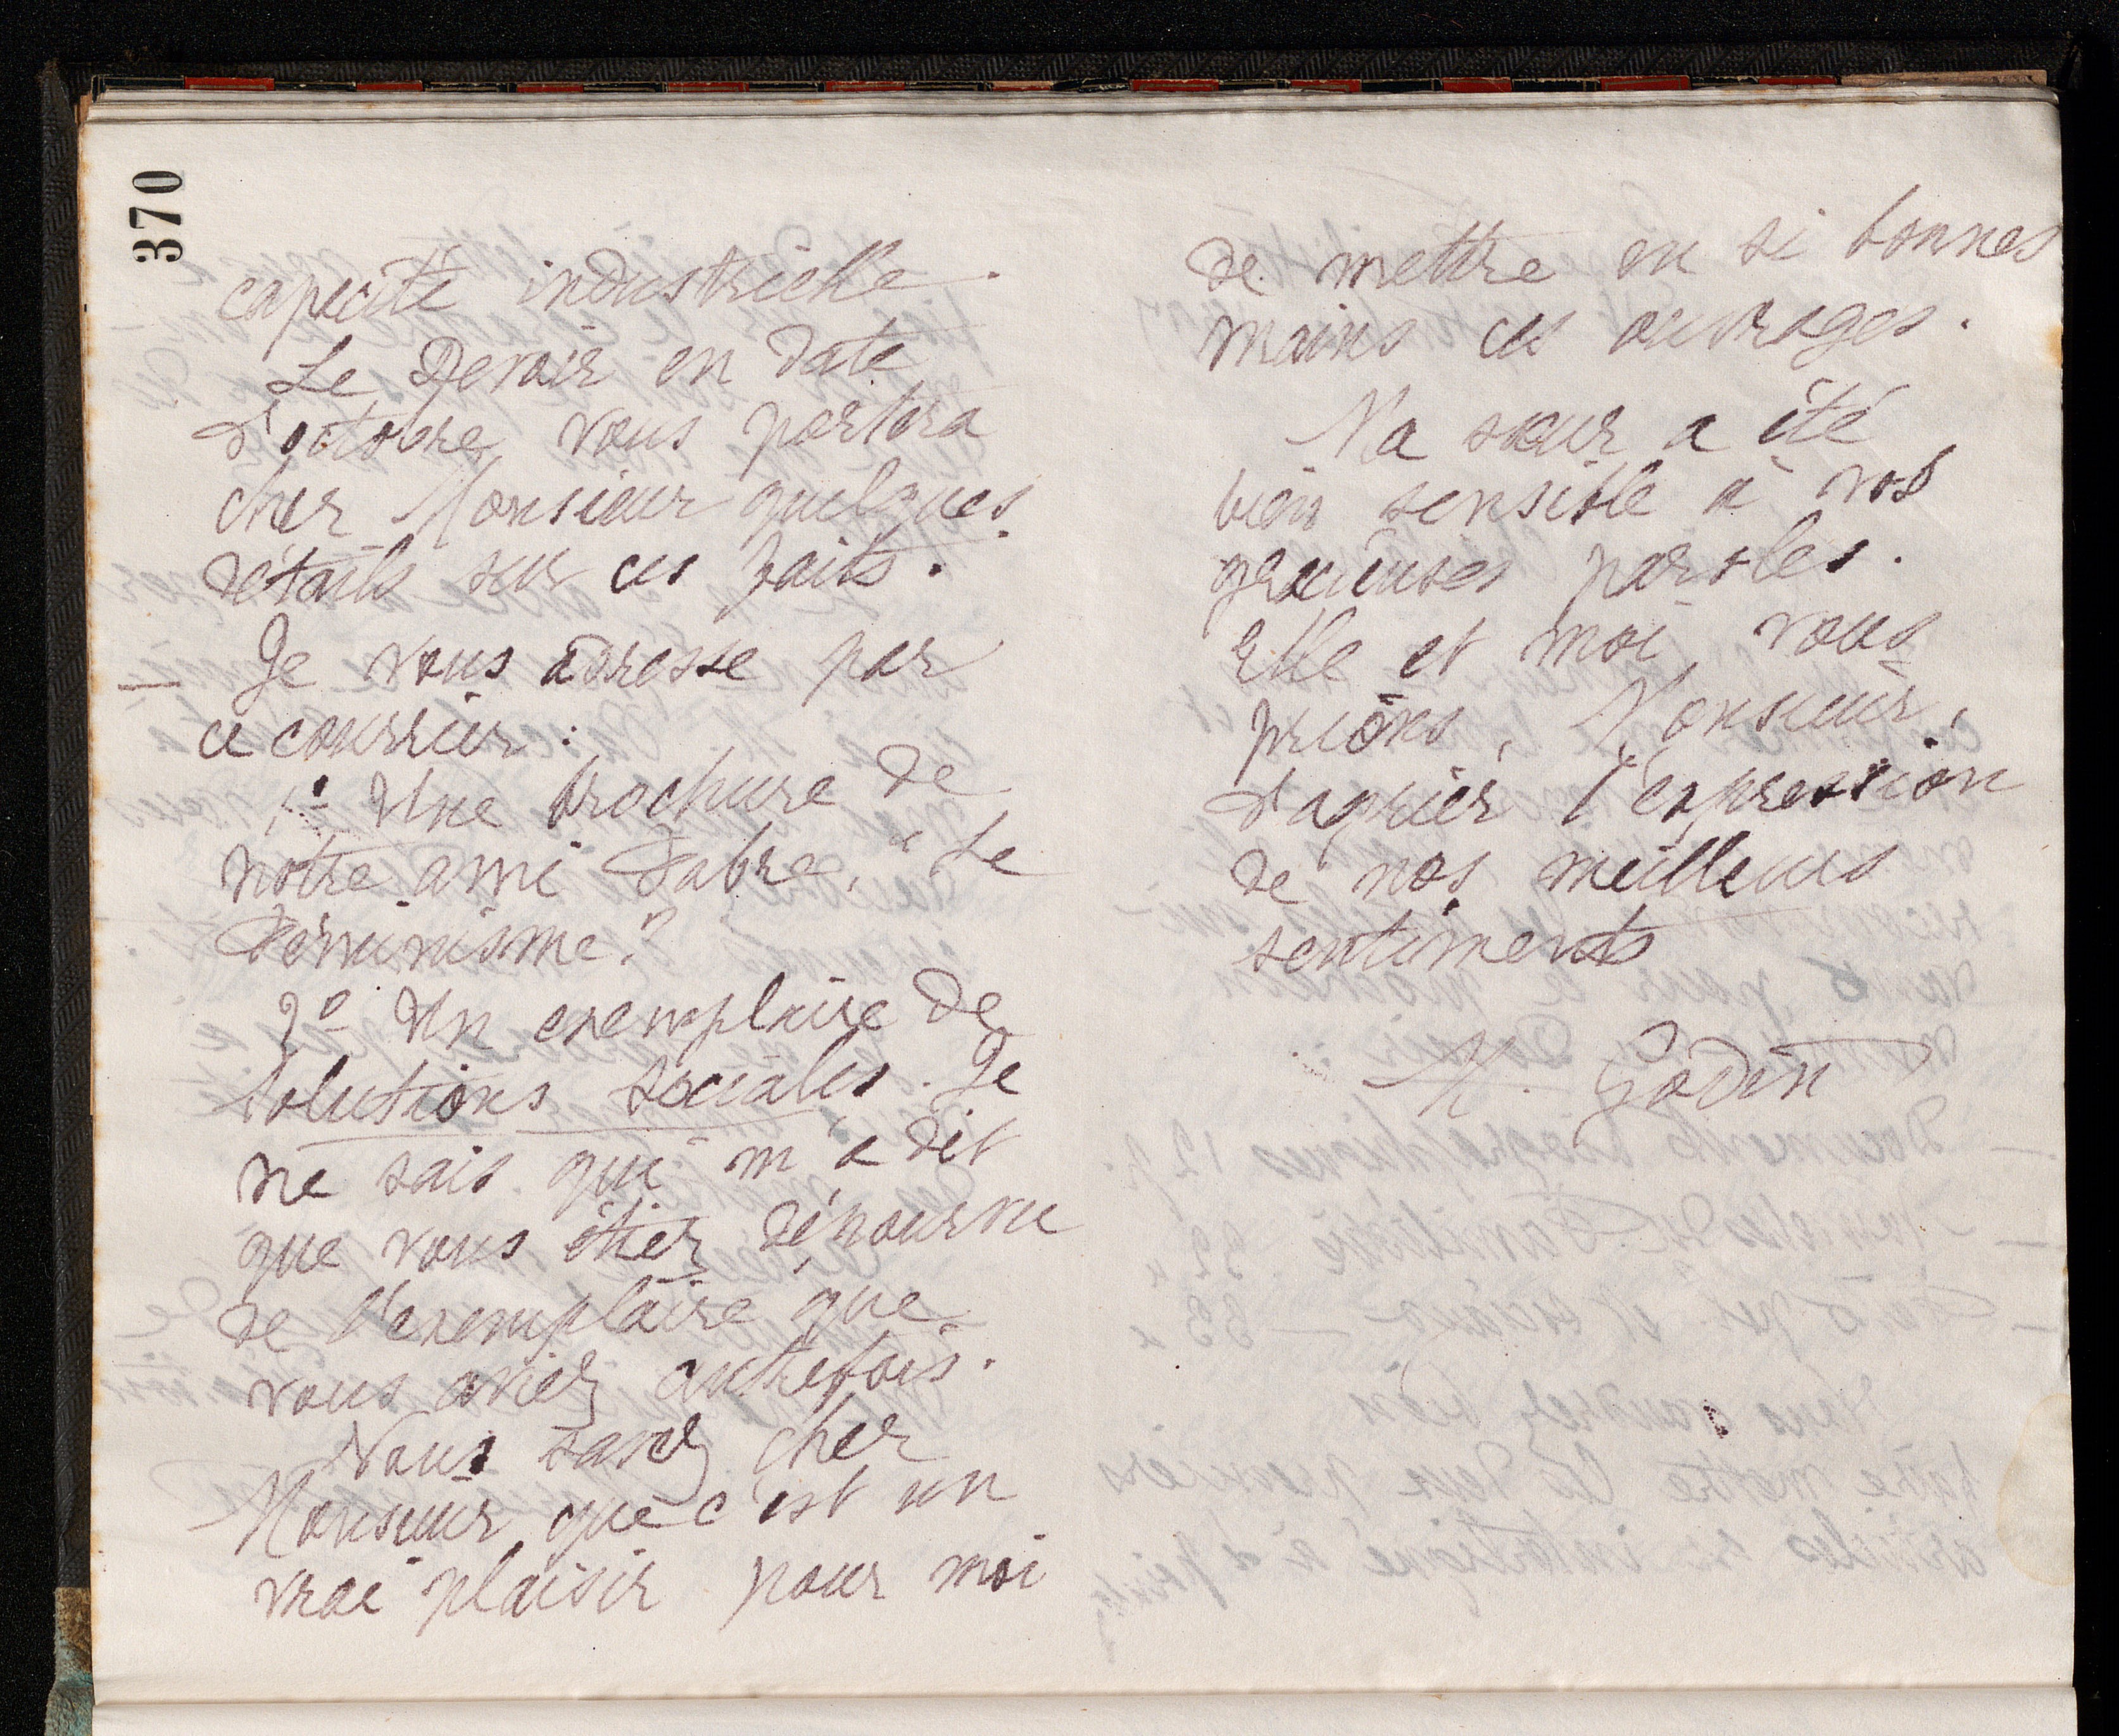 370
capacité industrielle.
Le Devoir en date
d'octobre vous portera
cher Monsieur quelques
détails sur ces faits.
Je vous adresse par
ce courrier :
1º Une brochure de
notre ami Fabre, "Le
Féminisme."
2º Un exemplaire de
Solutions sociales. Je
ne sais qui m'a dit
que vous étiez dépourvu
de l'exemplaire que
vous aviez autrefois.
Vous savez cher
Monsieur que c'est un
vrai plaisir pour moi
de mettre en si bonnes
mains ces ouvrages.
Ma sœur a été
bien sensible à vos
gracieuses paroles.
Elle et moi, vous
prions, Monsieur,
d'agréer l'expression
de nos meilleurs
sentiments
M. Godin